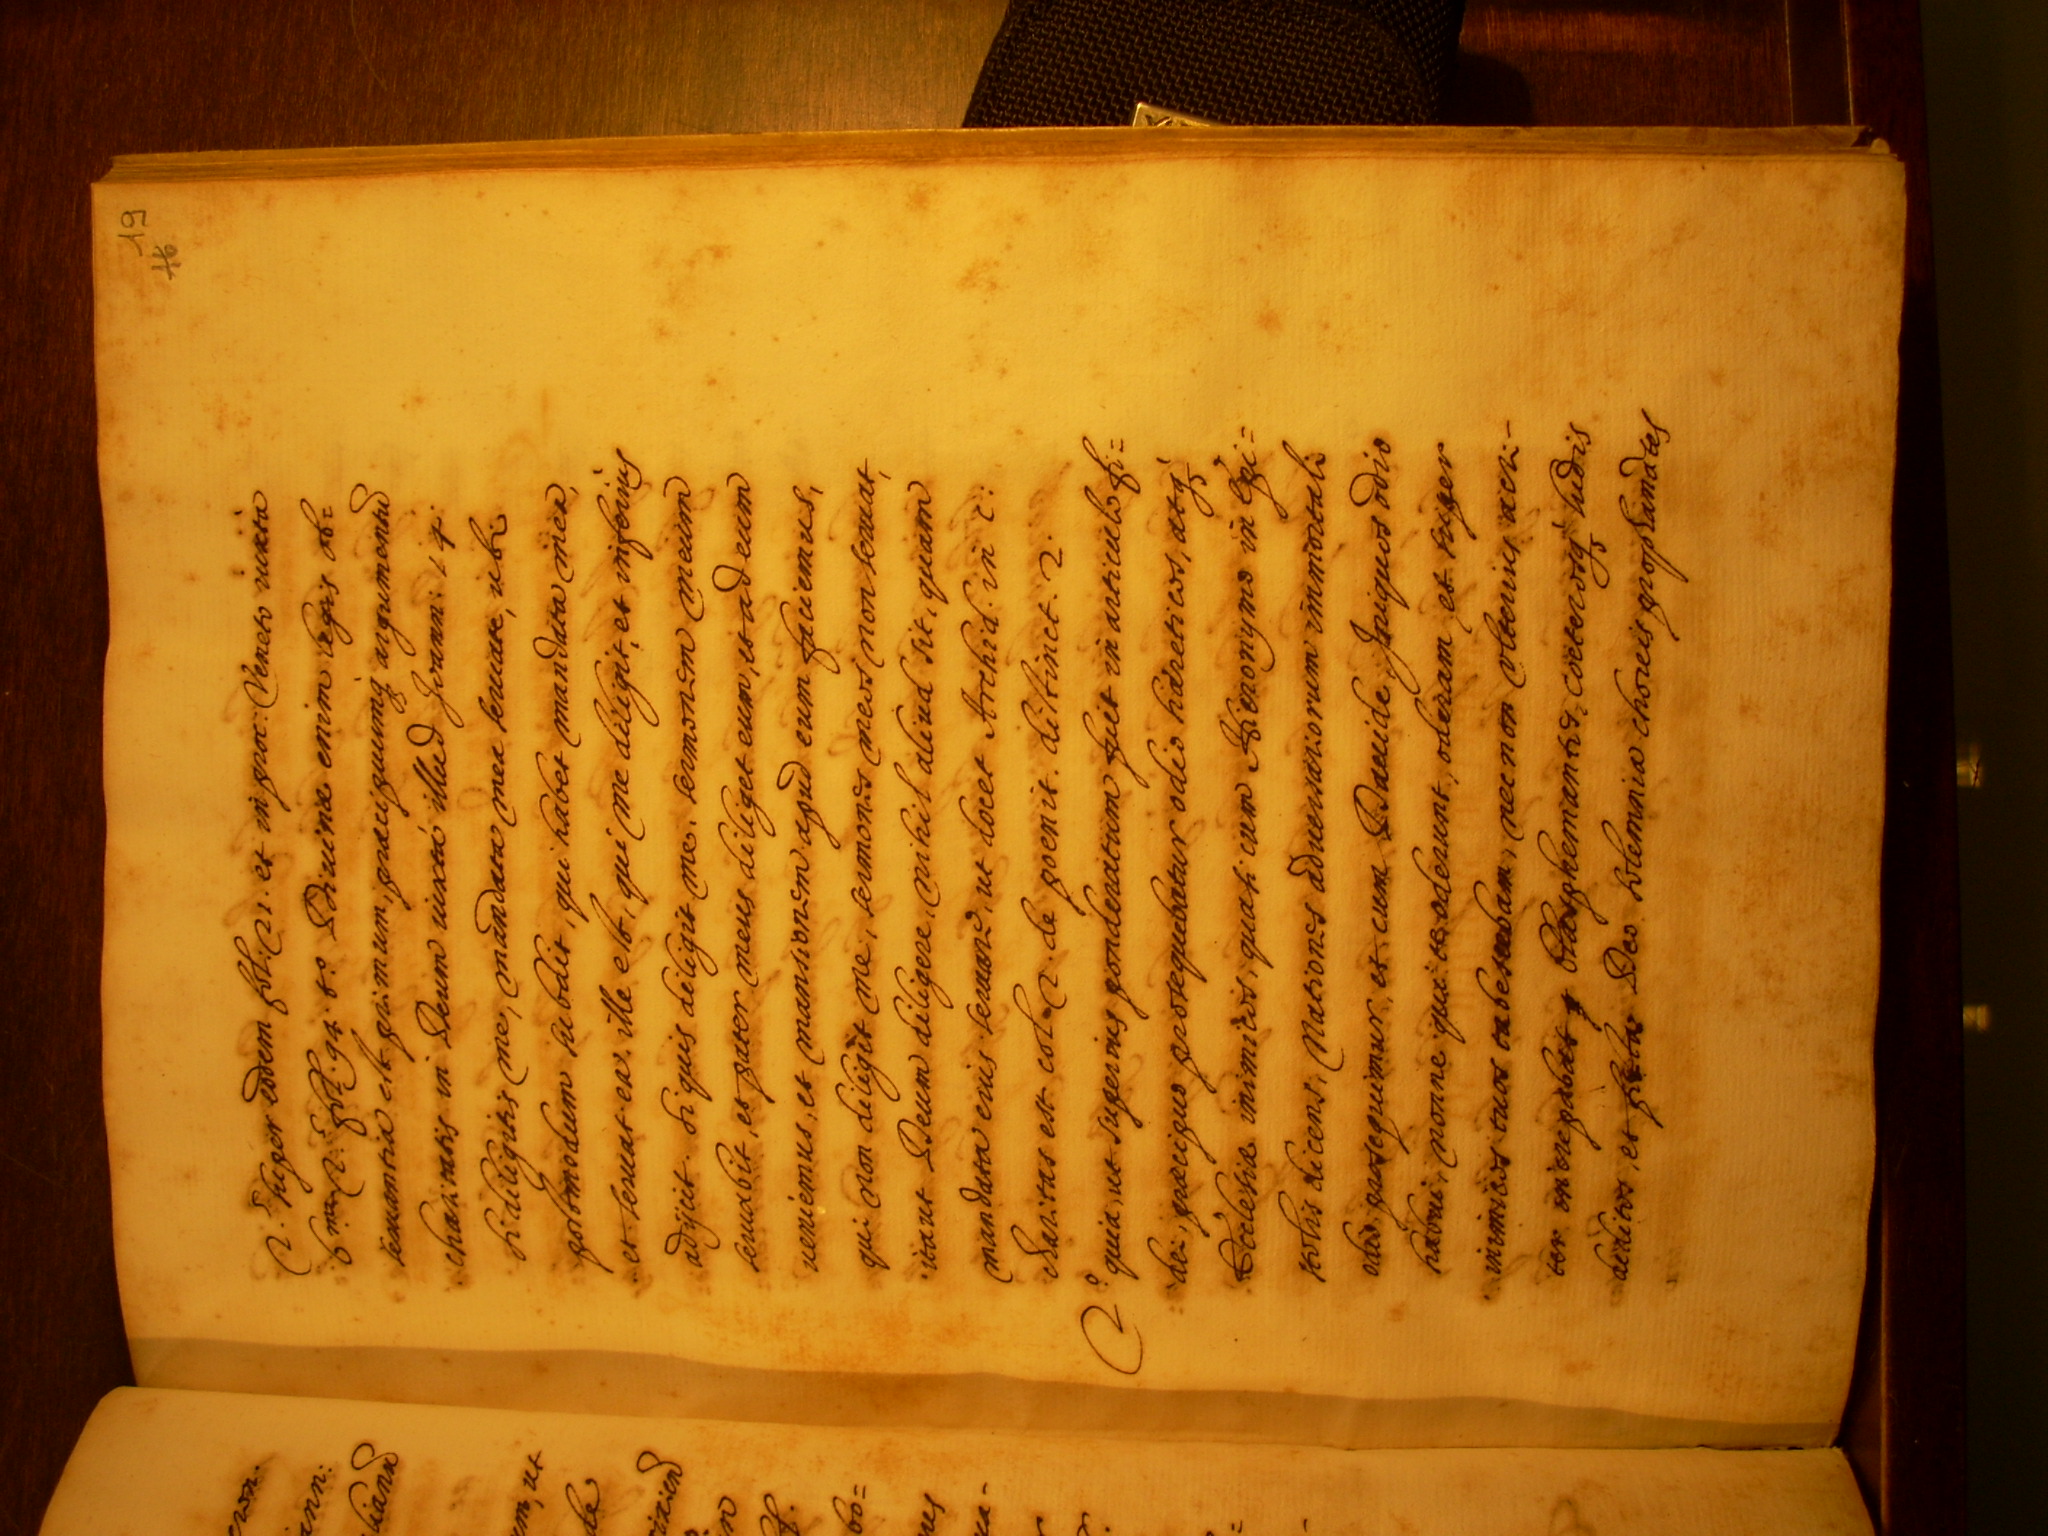 19
16
2. super eodem fol: 21. et in proc: Veneto iuxta
6.m 2.e fol: 94. t.o Diuinæ enim legis ob=
seruantia est primum, præcipuumq; argumentũ
charitatis in Deum iuxtà illud Joann: 14:
si diligitis me, mandata mea seruate, ubi
postmodum subdit, qui habet mandata mea,
et seruat ea, ille est, qui me diligit, et inferius
adijcit siquis diligit me, sermonem meum
seruabit, et pater meus diliget eum, et ad eum
ueniemus, et mansionem apud eum faciemus,
qui non diligit me, sermones meos non seruat,
itaut Deum diligere, nihil aliud sit, quam
mandata eius seruare, ut docet Archid. in c:
charitas est col. 2. de poenit. distinct. 2.
2.o quia, ut superius ponderatum fuit in articulo fi=
dei, præcipuo prosequebatur odio hæreticos, atq;
Ecclesiæ inimicos, quasi cum Hieronymo in Epi=
stolis dicens, Nationes aduersariorum immortali
odio prosequimur, et cum Dauide, Iniquos odio
habui, nonne qui te oderunt, oderam et super
inimicos tuos tabescebam, necnon ulterius acri-
ter increpabat blasphemantes, coeterosq; ludis
deditos, et festa Deo solemnia choreis prophanãtes
ann:
um, ut
de
bo=